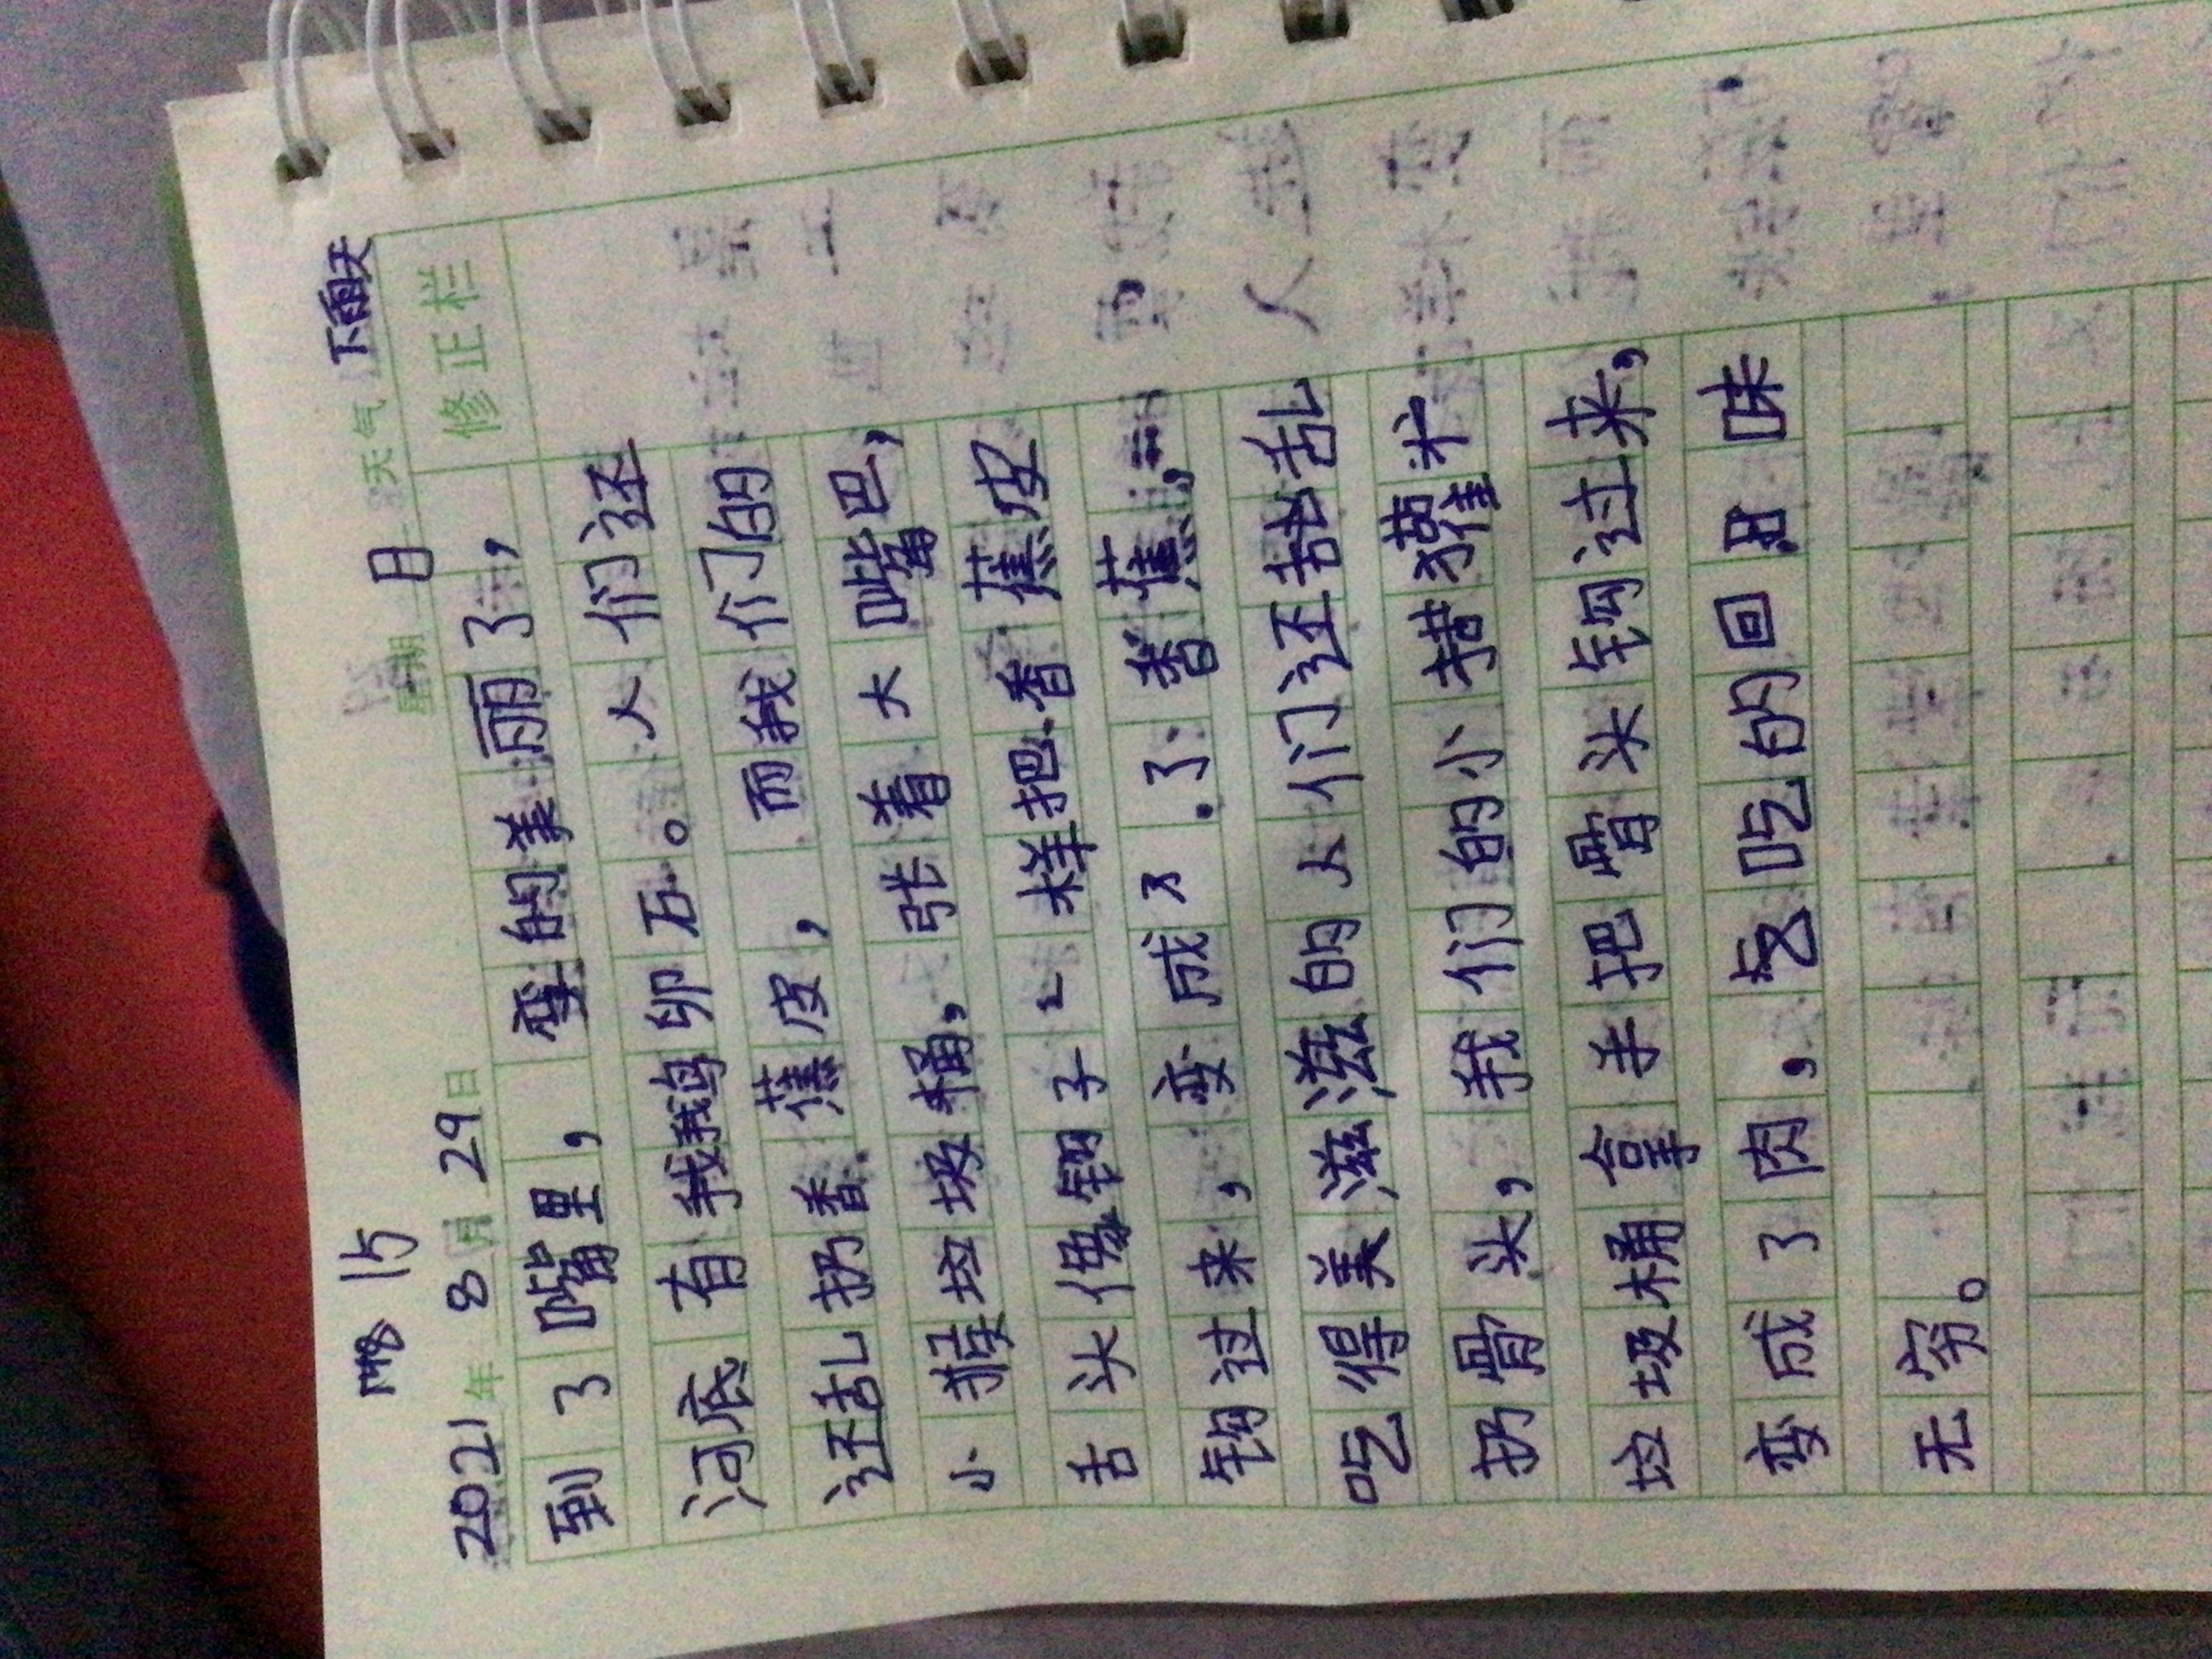 15
2021年 8月 29日 星期 日 天气 下雨天
修正栏
到了嘴里,变的美丽了,
河底有我我鸟卵石。人们还
还乱扔香蕉皮,而我们的
小猴垃圾桶,张着大嘴巴,
舌头像钩子一样把香蕉皮
钩过来,变成了香蕉,
吃得美滋滋的人们还苦苦乱
扔骨头,我们的小猎獾
垃圾桶拿手把骨头钩过来,
变成了肉,吃的回味
无穷。